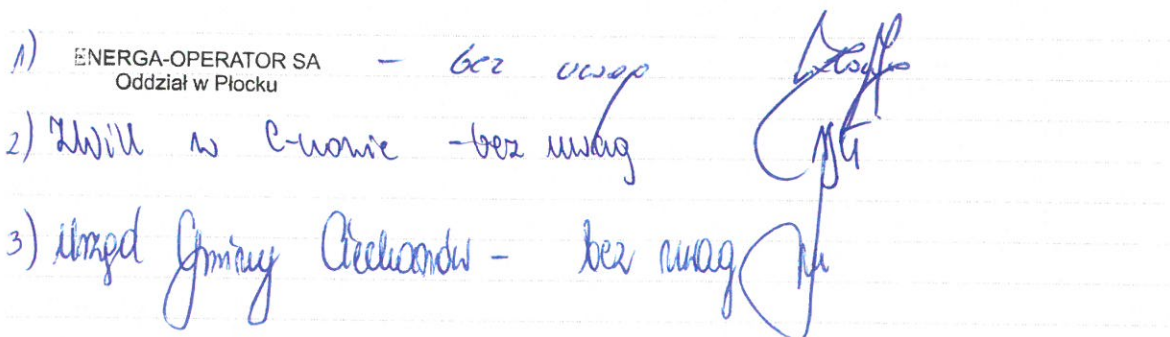 1) ENERGA-OPERATOR SA - bez uwag
Oddział w Płocku
2) ZWiK w C-nowie - bez uwag
3) Urząd Gminy Ciechanów - bez uwag